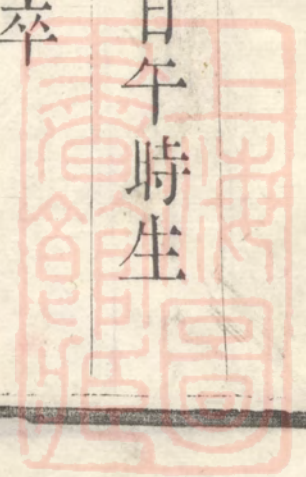 日午時生
卒
上海圖
書館藏